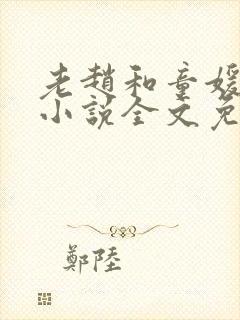 老趙和童媛
小說全文免
鄭陸